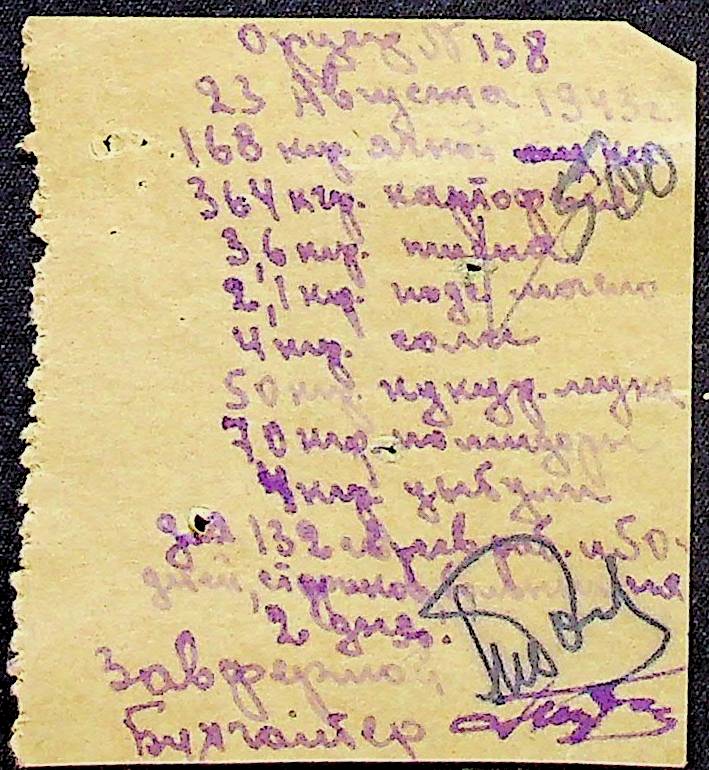 Ордер № 138
23 Августа 1943 г
168 кгр. ячной
500
364 кгр. картофеля
3,6 кгр.
2,1 кгр. подс. масло
4 кгр. соли
50 кгр. кукур. мука
70 кгр. помидоры
4 кгр. цыбули
для 132 евреев раб. и 50
2 дня.
Завфермой
Бухгалтер